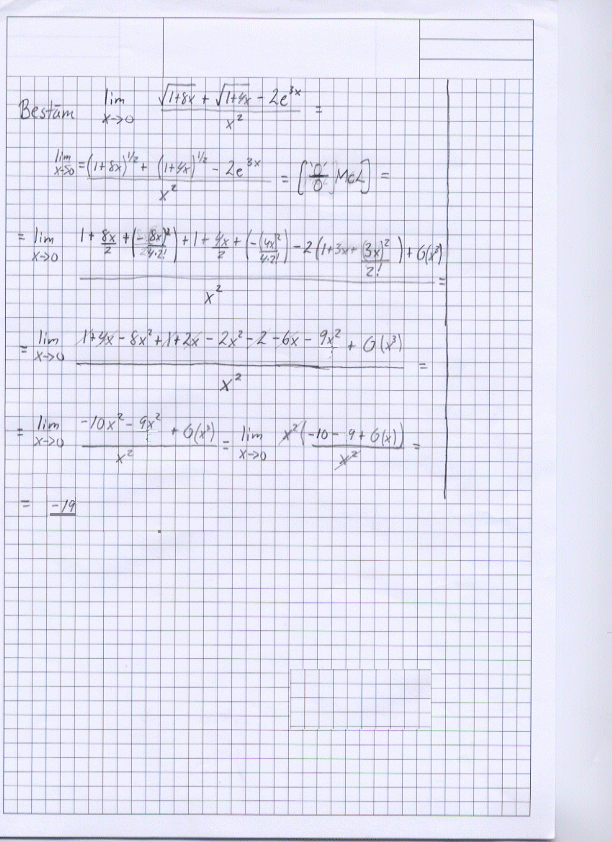 Bestäm lim x→0 (√(1+8x) + √(1+4x) - 2e^(3x)) / x² =
lim x→0 = ((1+8x)^(1/2) + (1+4x)^(1/2) - 2e^(3x)) / x² = ["0/0" McL] =
= lim x→0 (1 + 8x/2 + (-(8x)²/(4·2!)) + 1 + 4x/2 + (-(4x)²/(4·2!)) - 2(1+3x+(3x)²/2!) + O(x³)) / x² =
= lim x→0 (1+4x - 8x² + 1 + 2x - 2x² - 2 - 6x - 9x² + O(x³)) / x² =
= lim x→0 (-10x² - 9x² + O(x³)) / x² = lim x→0 x²(-10 - 9 + O(x)) / x² =
= -19